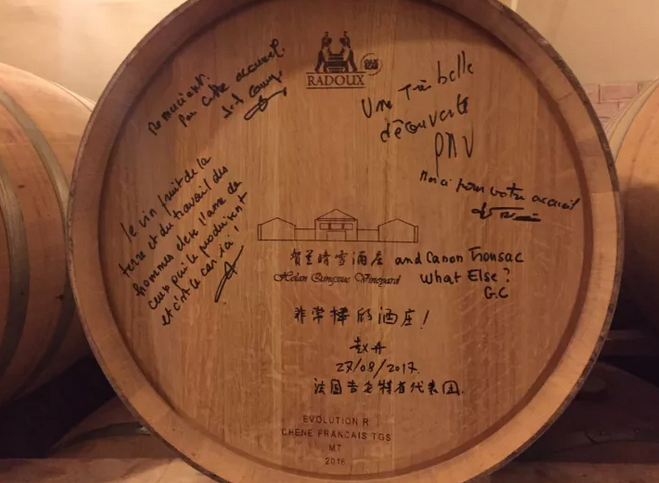 RADOUX
Remerciements
Par cette accueil.
Une très belle
découverte
PNV
Merci pour votre accueil
le vin fruit de la
terre et du travail des
hommes de l'âme de
ceux qui le produisent
et c'est le cas ici !
贺兰晴雪酒庄 and Canon Fronsac
Helan Qingxue Vineyard What Else?
G.C
非常棒的酒庄!
赵丹
27/08/2017.
法国吉伦特省代表团.
EVOLUTION R
CHENE FRANCAIS TGS
MT
2016